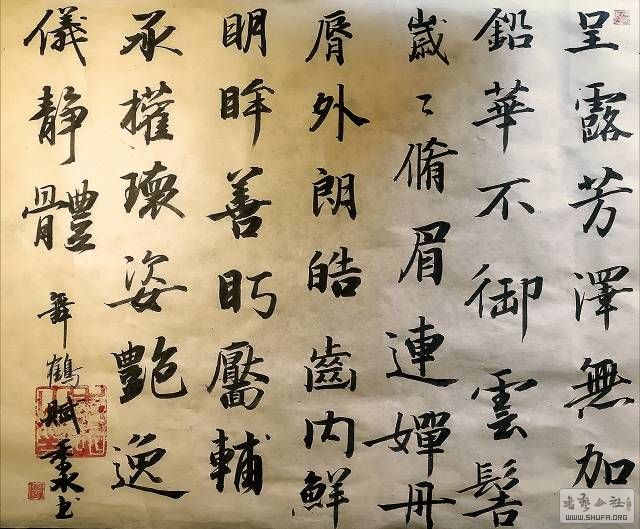 呈露芳澤無加
鉛華不御雲髻
峩〻脩眉連嬋丹
脣外朗皓齒内鮮
眀眸善眄靨輔
承權瓌姿艶逸
儀静體
舞鶴賦
书艺公社
WWW.SHUFA.ORG